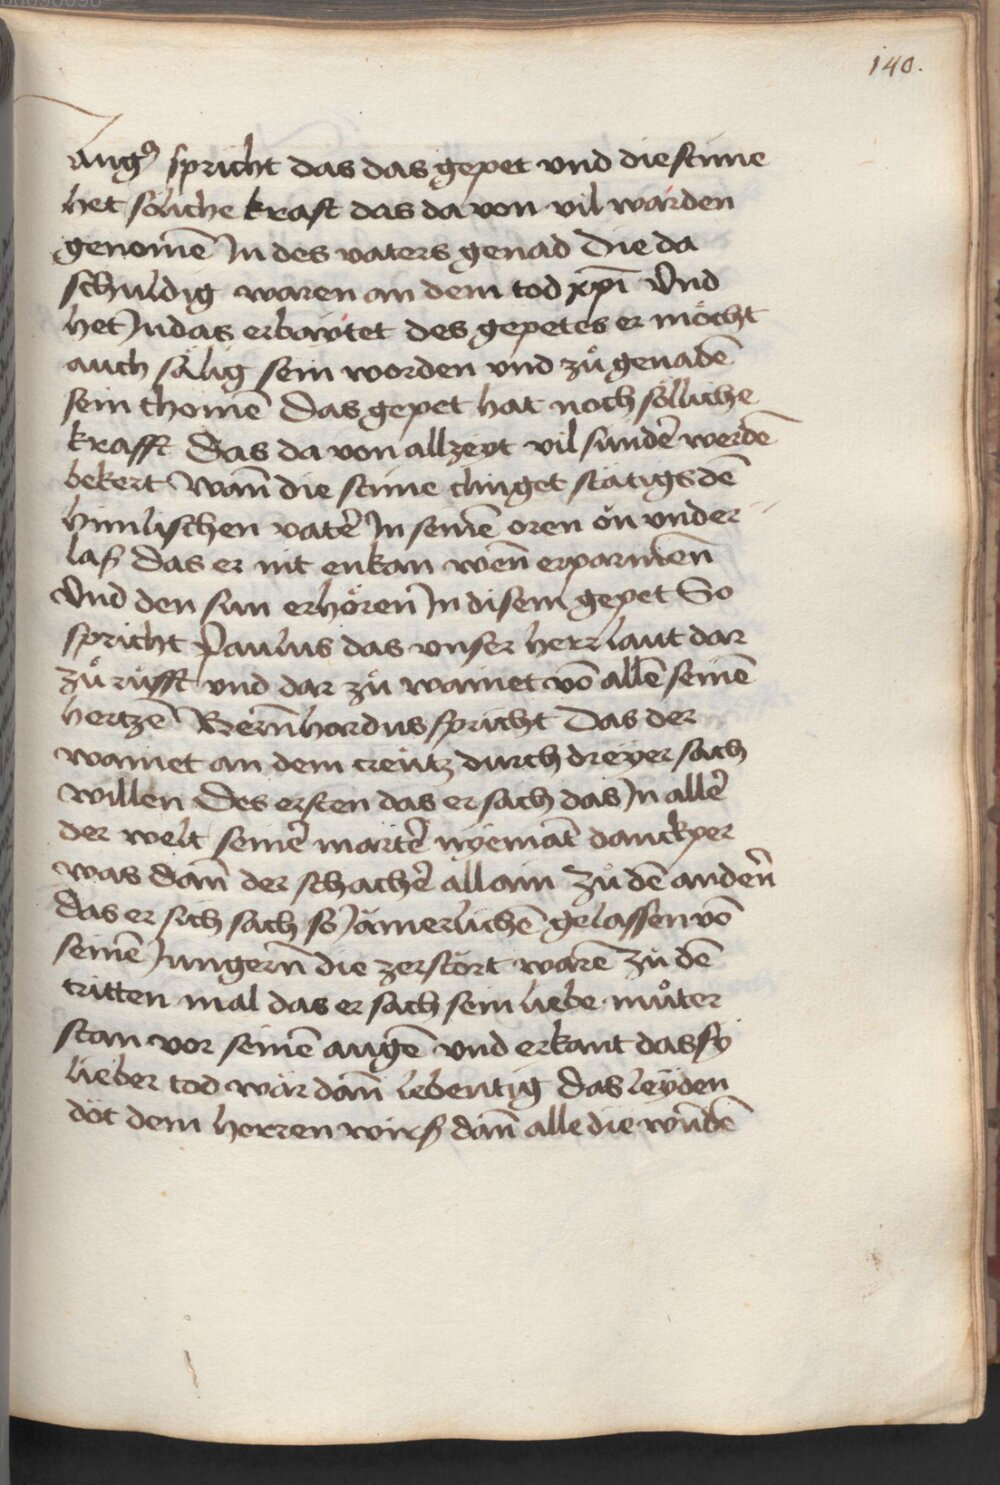 140.
Augꝰ spricht das das gepet vnd die stīme
het söliche kraft das da von vil warden
genomē Jn des vaters genad Die da
schuldig waren an dem tod xp̄i Vnd
het Judas erbaytet des gepetes er möcht
auch sälig sein worden vnd zů genadē
sein chomē Das gepet hat noch sölliche
krafft Das da von allzeyt vil sunder̄ werdē
bekert Wan̄ die stīme clinget stätigs dē
himlischen vater̄ Jn seinē oren ön vnder
laß das er nit enkan wen̄ erparmen̄
Vnd den sun erhören̄ Jn disem gepet So
spricht Paulus das vnser herr laut dar
zů růfft vnd dar zů wainet vō allē seinē
hertzē Bern̄hardus spricht Das der
wainet an dem creütz durch dreyer sach
willen Des ersten das er sach das Jn aller̄
der welt seiner̄ marter̄ nyemāt danckper
was dan̄ der schacher̄ allain Zů dē andern̄
Das er sich sach so Jämerlichē gelassen vō
seinē Jungern̄ die zerstört warē Zů dē
tritten mal das er sach sein liebe můter
stan vor seinē augē vnd erkant das sy
lieber tod wär dan̄ lebentig Das leyden
döt dem herren wirß dan̄ alle die wūdē